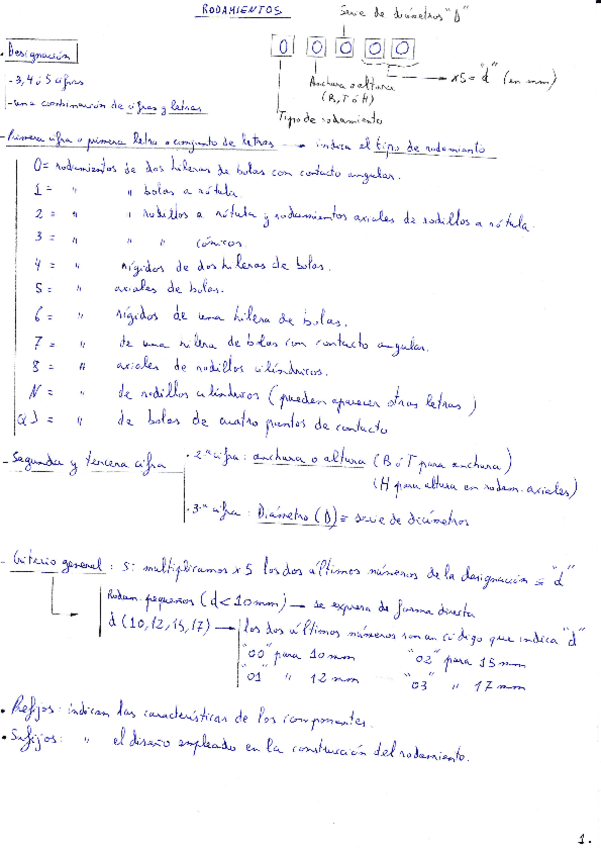 RODAMIENTOS
Serie de diámetros "D"
· Designación
0 0 0 0 0
- 3, 4 ó 5 cifras
- una combinación de cifras y letras
Anchura o altura
(B, T ó H)
x5 = "d" (en mm)
Tipo de rodamiento
- Primera cifra o primera letra o conjunto de letras → indica el tipo de rodamiento
0 = rodamientos de dos hileras de bolas con contacto angular.
1 = " " bolas a rótula.
2 = " " rodillos a rótula y rodamientos axiales de rodillos a rótula.
3 = " " " cónicos.
4 = " rígidos de dos hileras de bolas.
5 = " axiales de bolas.
6 = " rígidos de una hilera de bolas.
7 = " de una hilera de bolas con contacto angular.
8 = " axiales de rodillos cilíndricos.
N = " de rodillos cilíndricos (pueden aparecer otras letras)
QJ = " de bolas de cuatro puntos de contacto
- Segunda y tercera cifra
· 2ª cifra: anchura o altura (B ó T para anchura)
(H para altura en rodam. axiales)
· 3ª cifra: Diámetro (D) = serie de diámetros
- Criterio general: Si multiplicamos x5 los dos últimos números de la designación = "d"
Rodam. pequeños (d<10mm) → se expresa de forma directa
d (10, 12, 15, 17) → los dos últimos números son un código que indica "d"
"00" para 10 mm "02" para 15 mm
"01" " 12 mm "03" " 17 mm
· Prefijos: indican las características de los componentes.
· Sufijos: " el diseño empleado en la construcción del rodamiento.
1.